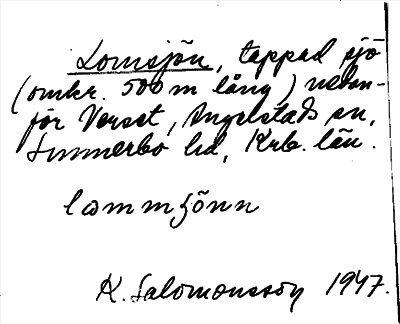 Lomsjön, tappad sjö
(omkr. 500 m lång) nedan-
för Verset, Angelstads sn,
Sunnerbo hd, Krb. län.
lωmmʃönn
K. Salomonsson 1947.